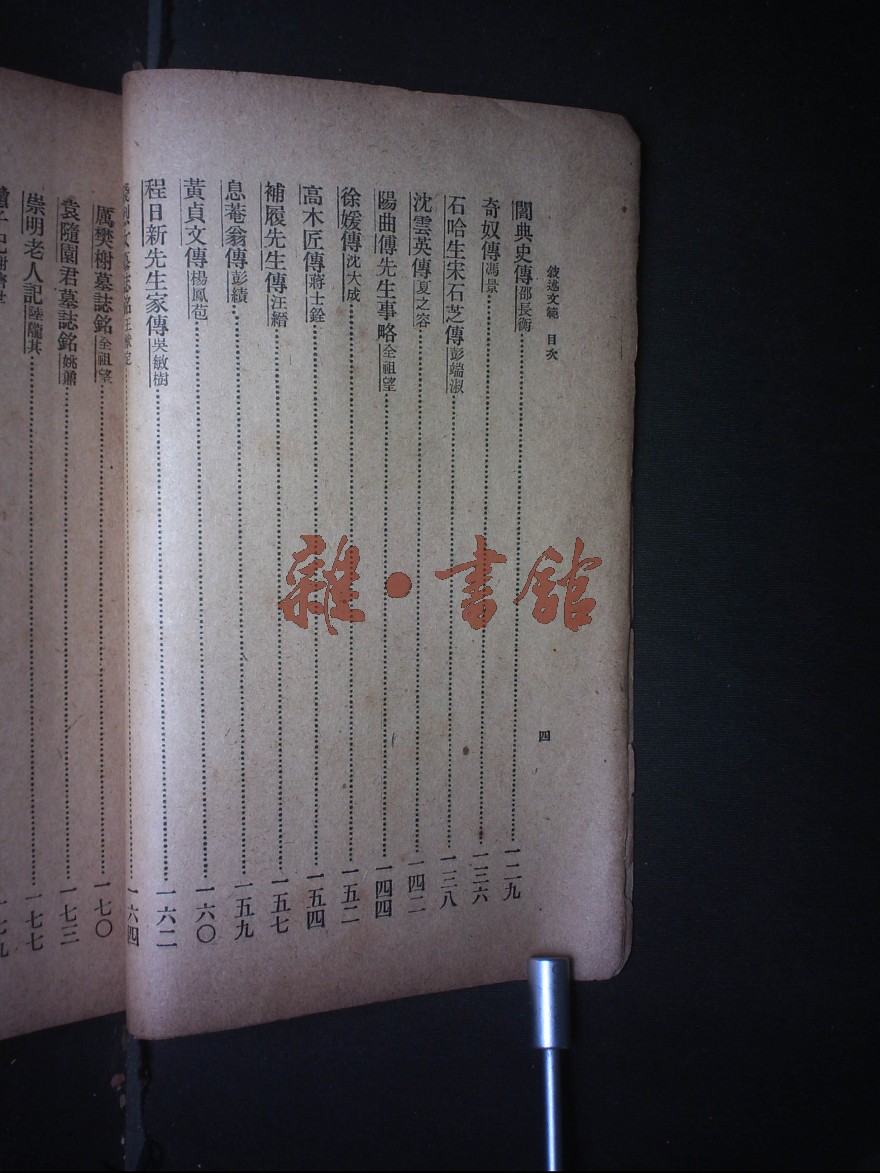 敍述文範 目次
四
閻典史傳 邵長衡……一二九
奇奴傳 馮景……一三六
石哈生宋石芝傳 彭端淑……一三八
沈雲英傳 夏之容……一四二
陽曲傅先生事略 全祖望……一四四
徐媛傳 沈大成……一五二
高木匠傳 蔣士銓……一五四
補履先生傳 汪縉……一五七
息菴翁傳 彭績……一五九
黃貞文傳 楊鳳苞……一六〇
程日新先生家傳 吳敏樹……一六二
烈女墓誌銘……一六四
厲樊榭墓誌銘 全祖望……一七〇
袁隨園君墓誌銘 姚鼐……一七三
崇明老人記 陸隴其……一七七
雜·書館